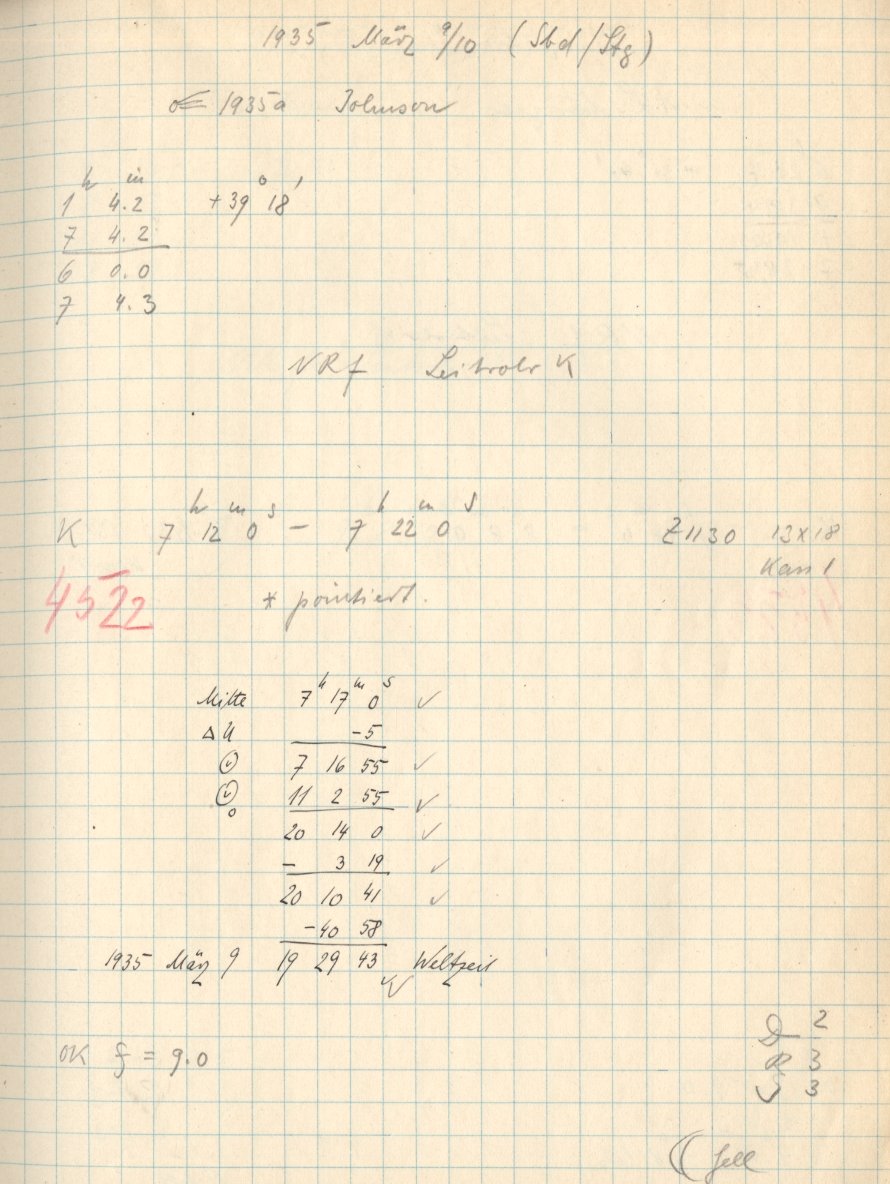 1935 März 9/10 (Sbd/Stg)
☄ 1935a Johnson
1ʰ 4.2ᵐ +39° 18'
7 4.2
6 0.0
7 4.3
NRf Leitrohr K
K 7ʰ 12ᵐ 0ˢ – 7ʰ 22ᵐ 0ˢ Z1130 13x18
Kass 1
4522 * pointiert.
Mitte 7ʰ 17ᵐ 0ˢ ✓
ΔU -5
7 16 55 ✓
11 2 55 ✓
20 14 0 ✓
- 3 19 ✓
20 10 41 ✓
-40 58
1935 März 9 19 29 43 Weltzeit
OK f = 9.0
D 2
R 3
3
☾ hell